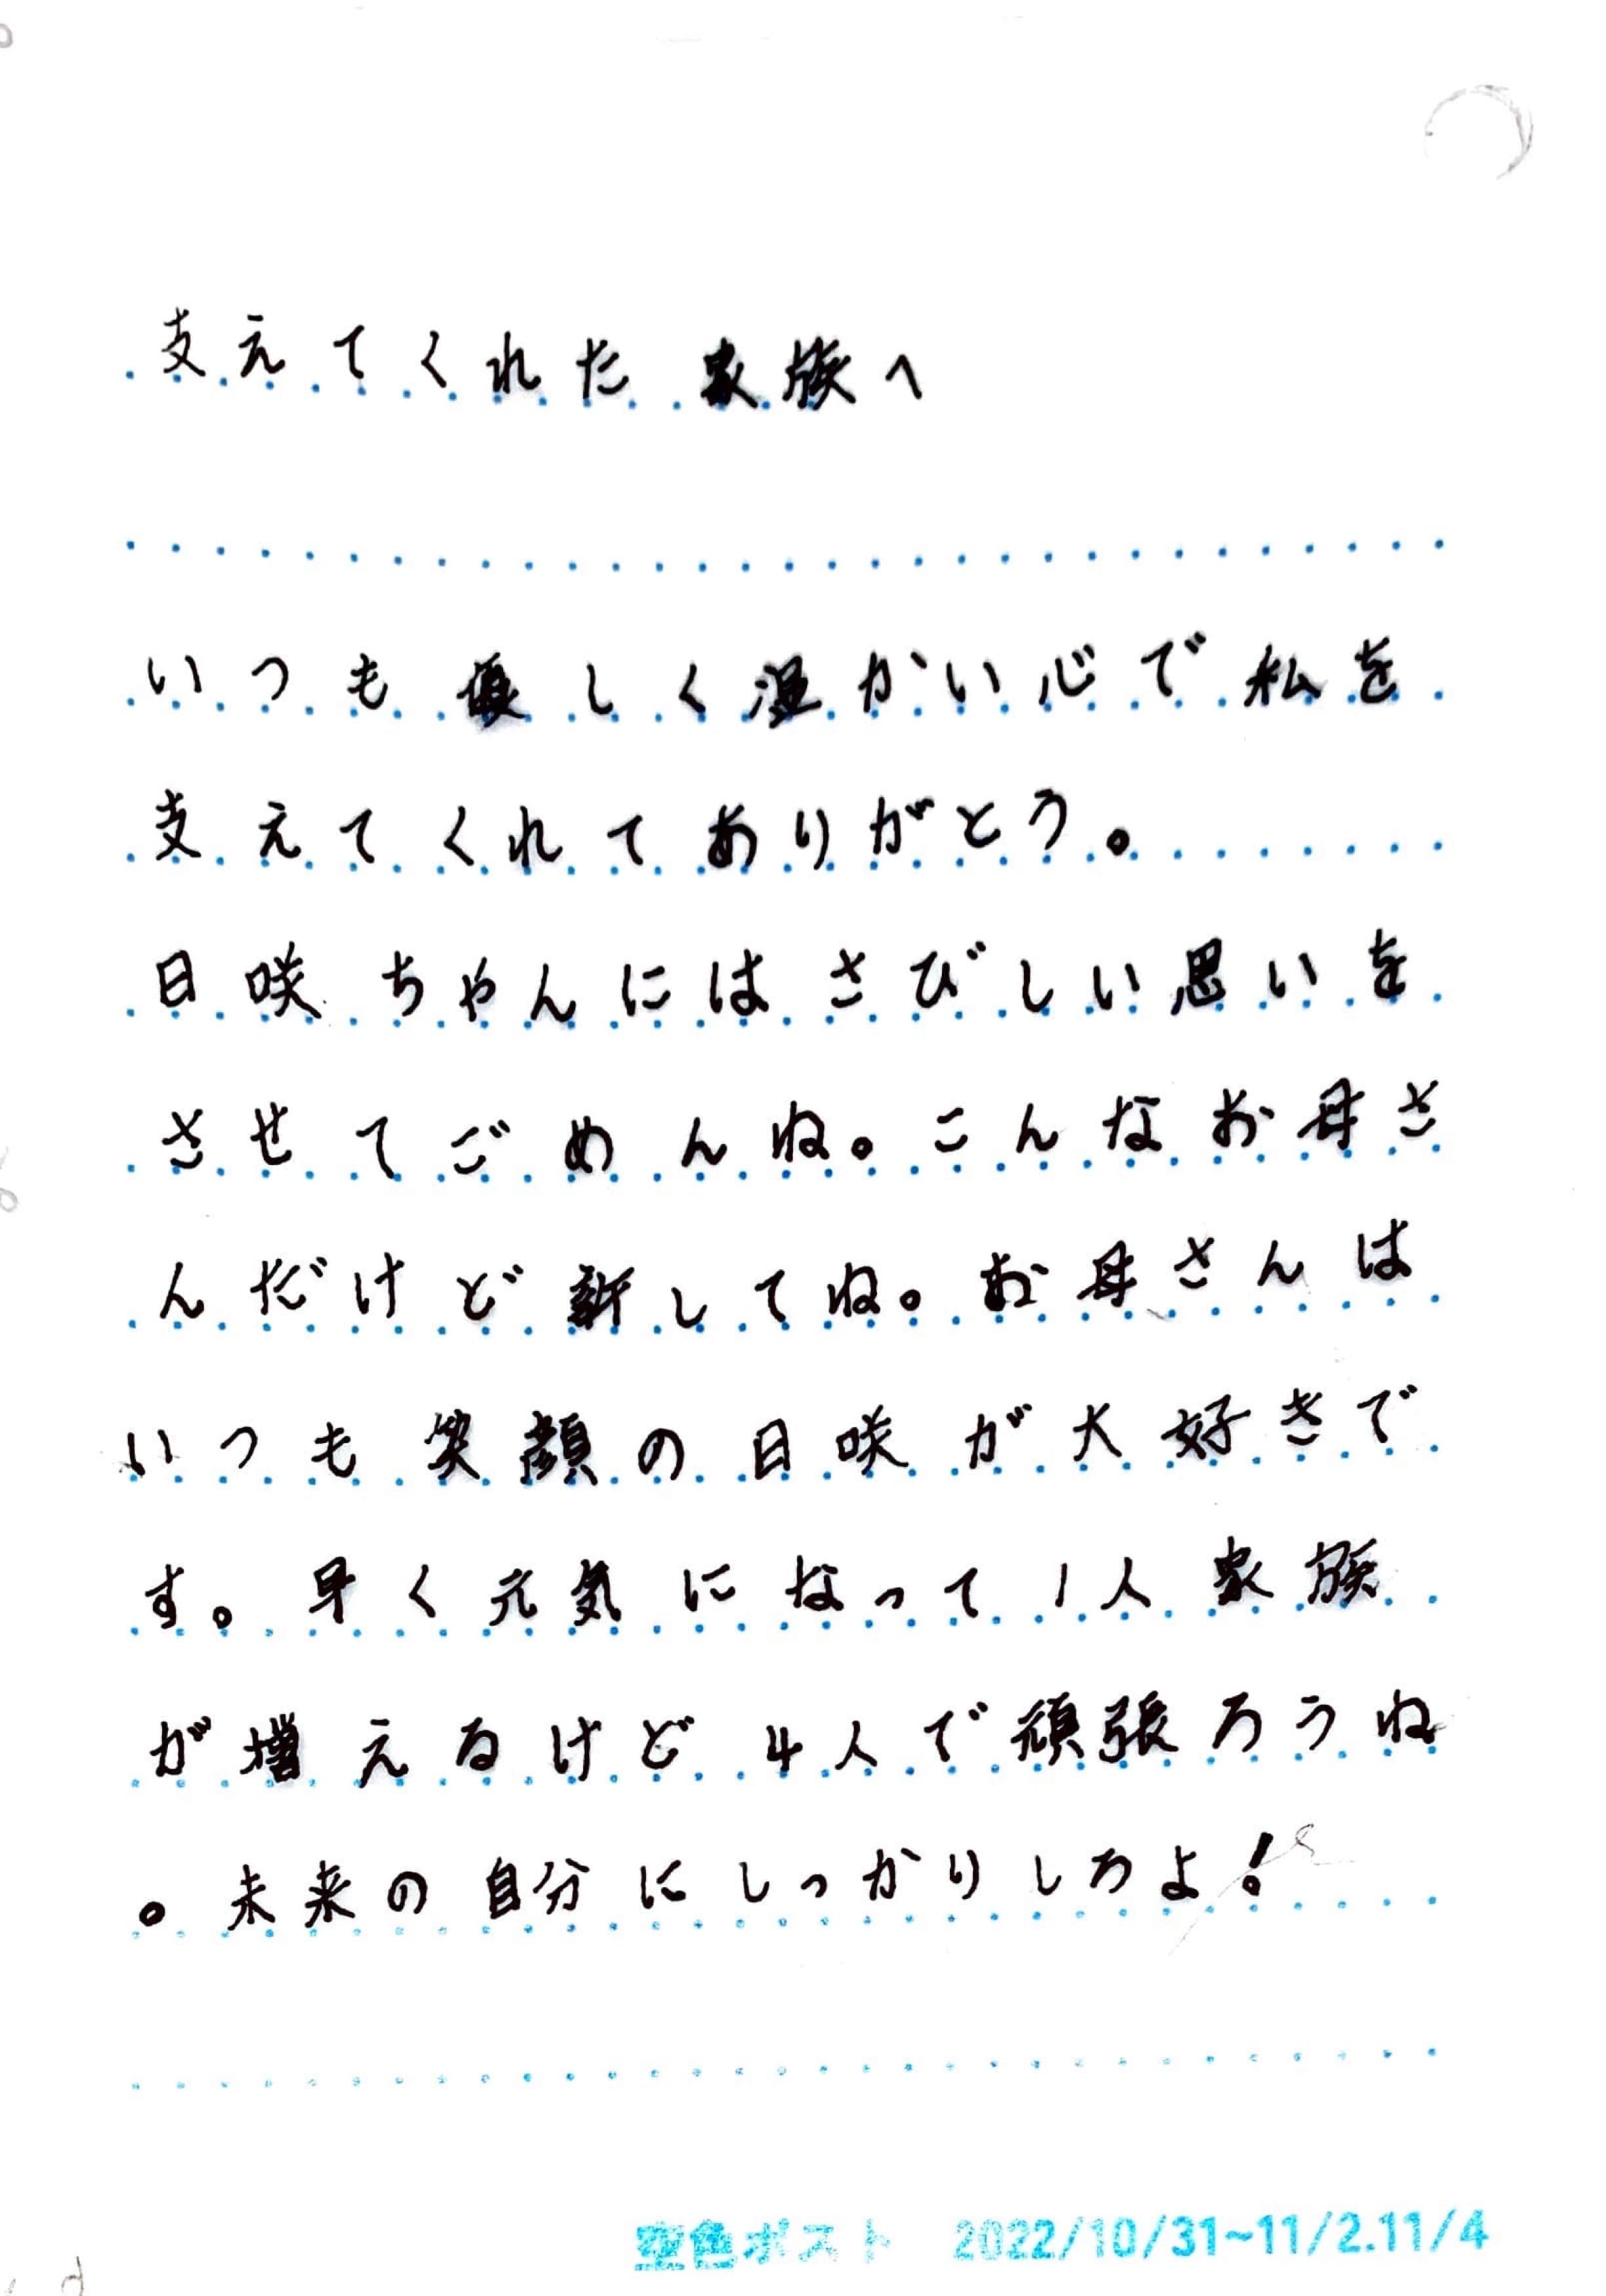 支えてくれた家族へ
いつも優しく温かい心で私を
支えてくれてありがとう。
日咲ちゃんにはさびしい思いを
させてごめんね。こんなお母さ
んだけど新してね。お母さんは
いつも笑顔の日咲が大好きで
す。早く元気になって1人家族
が増えるけど4人で頑張ろうね
。未来の自分にしっかりしろよ!
空色ポスト 2022/10/31~11/2.11/4